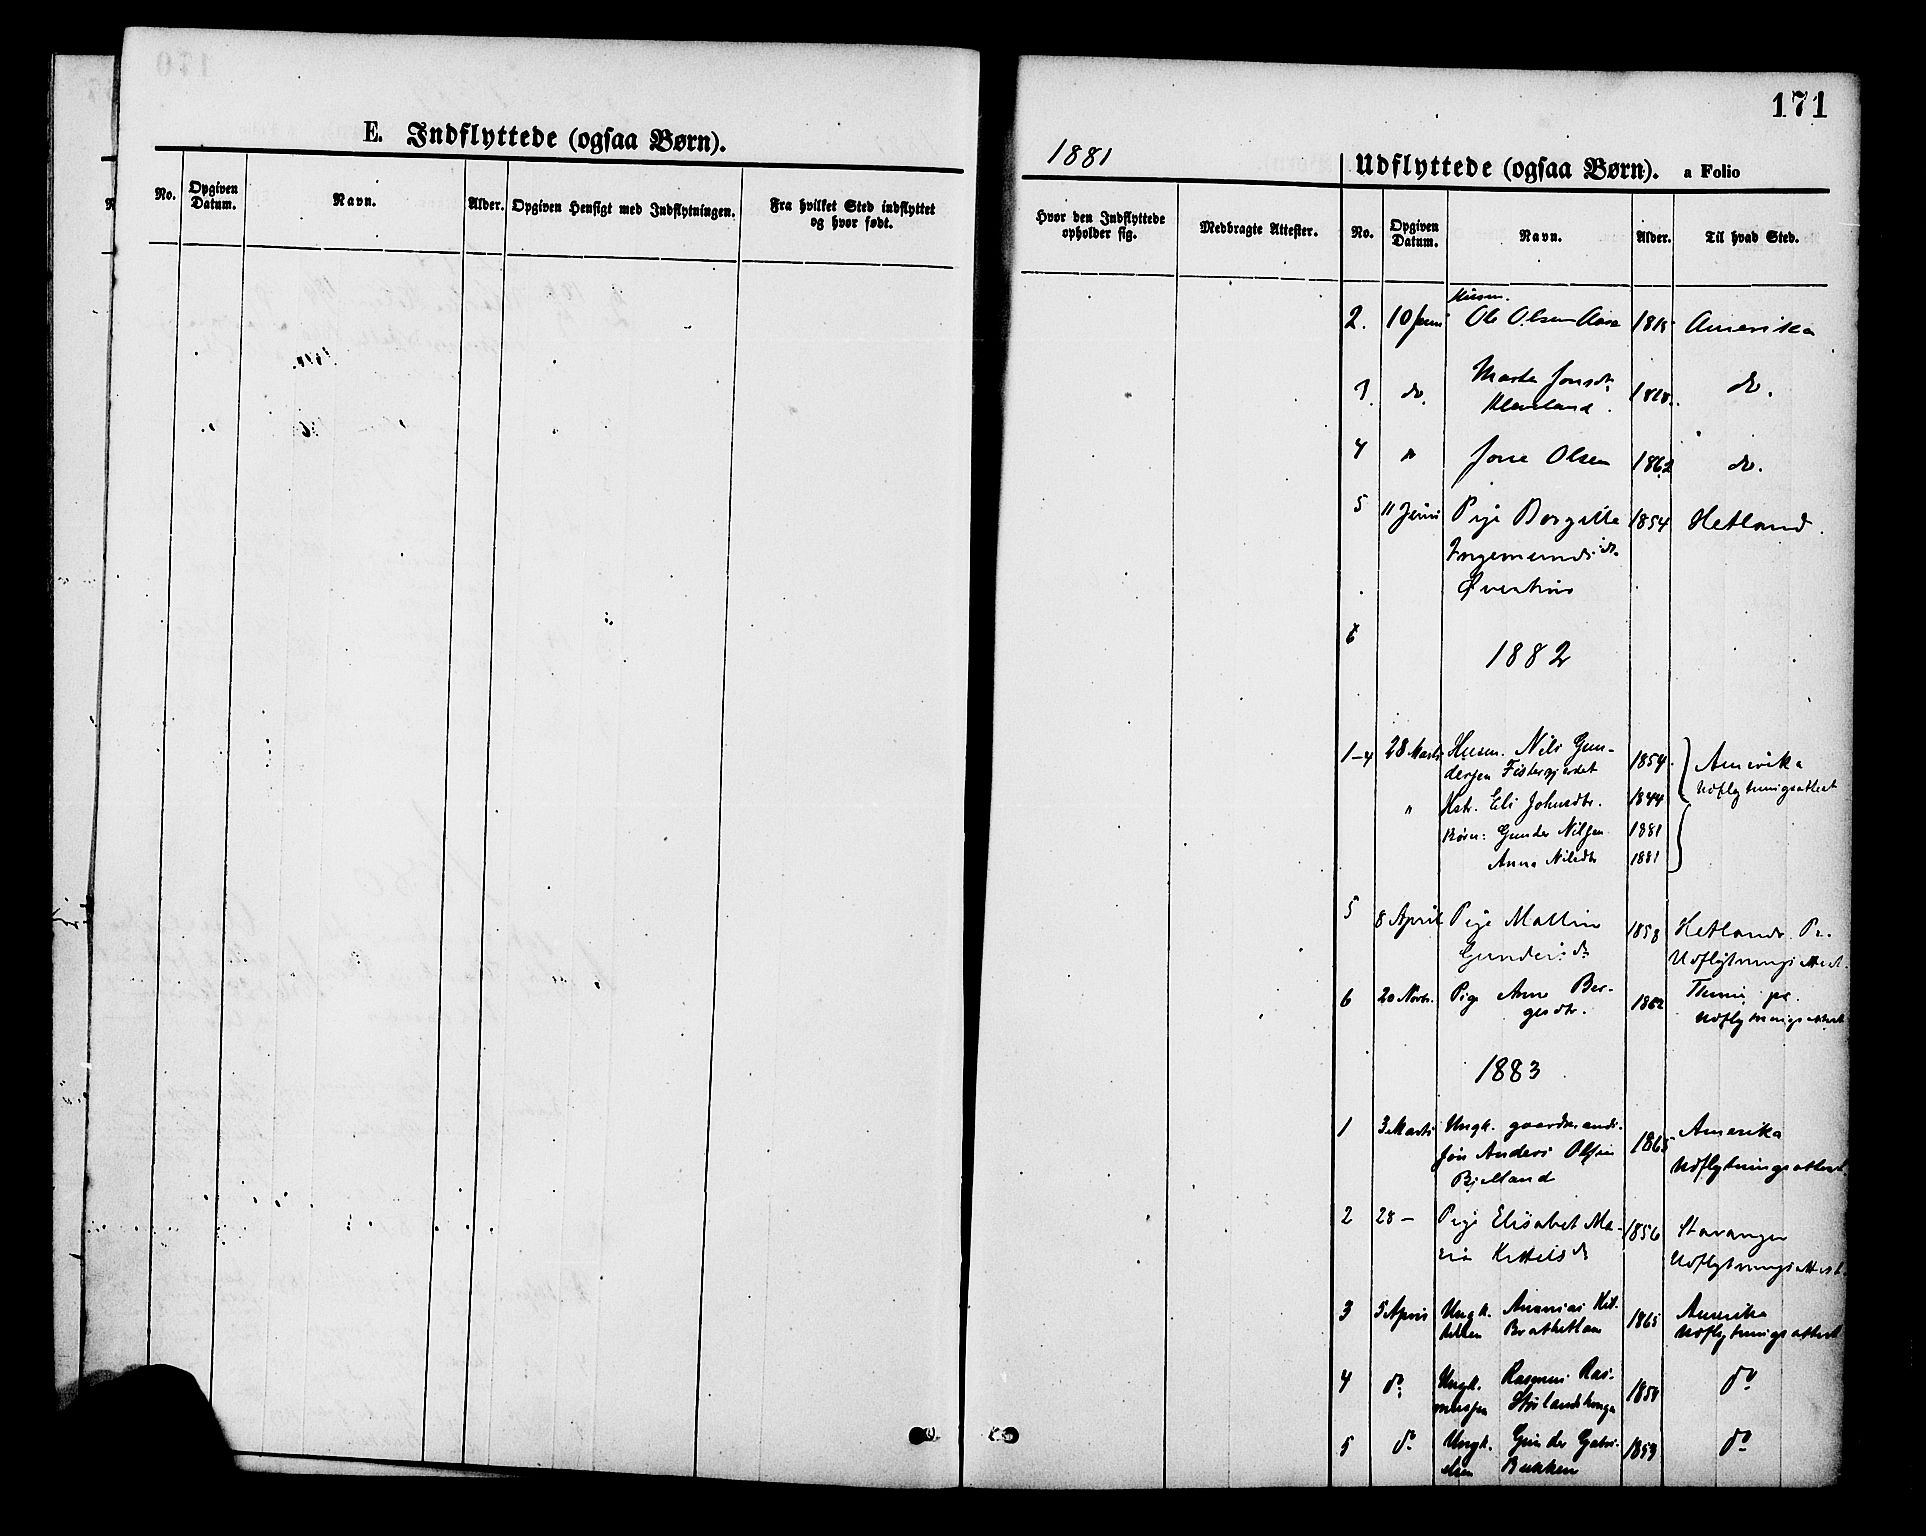 171
E. Indflyttede (ogsaa Børn).
No.
Opgiven Datum.
Navn.
Alder.
Opgiven Hensigt med Indflytningen.
Fra hvilket Sted indflyttet
og hvor født.
1881
Udflyttede (ogsaa Børn). a Folio
Hvor den Indflyttede
opholder sig.
Medbragte Attester.
No.
Opgiven Datum.
Navn.
Alder.
Til hvad Sted.
2. 10 Juni Ole Olsen Aase Amerika
do. Marta Jonsdr. do.
4 " Jone Olsen 1862 do.
5 11 Juni Pige Borgille 1854 Hetland.
Ingemundsdr.
6
1882
1-4 28 Marts Husm. Nils Gun- 1854 Amerika
dersen Udflytningsattest
" Kstr. Eli Johnsdtr. 1844
Børn: Gunder Nilsen 1881
Anna Nilsdtr 1881
5 8 April Pige Mallin 1858 Hetlands Pr.
Gundersdr. Udflytningsattest.
6 20 Novbr. Pige Anne Ber- 1862 pr.
gesdtr. Udflytningsattest
1883
1 3 Marts Ungk. gaardmands- 1865 Amerika
søn Anders Olsen Udflytningsattest.
Bjelland
2 28 — Pige Elisabet Ma- 1856 Stavanger
ria Kittelsdr Udflytningsattest.
3 5 April Ungk. Ananias Kit- 1865 Amerika
telsen Udflytningsattest
4 do. Ungk. Rasmus Ras- do.
mussen
5 do. Ungk. Gunder Gabri- 1859 do.
elsen Bakken